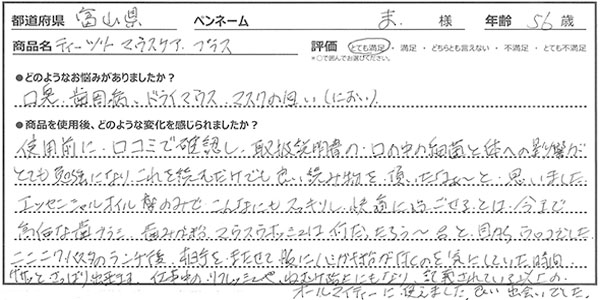 都道府県 富山県 ペンネーム ま. 様 年齢 56 歳
商品名 ティーツリー マウスケア プラス 評価 とても満足 ・ 満足 ・ どちらとも言えない ・ 不満足 ・ とても不満足
*○で囲んでお選びください。
●どのようなお悩みがありましたか?
口臭. 歯周病. ドライマウス. マスクの臭い(におい)
●商品を使用後、どのような変化を感じられましたか?
使用前に. 口コミで確認し. 取扱説明書の. 口の中の細菌と体への影響が
とても勉強になり. これを読んだけでも良い読み物を頂いたなぁ〜と. 思いました
エッセンシャルオイル 数のみで こんなにもスッキリし. 快適に過ごせるとは. 今まで
高価な歯ブラシ. 歯みがき粉 マウスウォッシュは 何だったろう〜 台と. 目からウロコでした
ニンニクパスタのランチ後. 相手を またせて 後に を気にしていた時間
がさっぱり 仕事中の リフレッシュや. ねむけ防止にもなり. 記載されている以上の
オールマイティーに使えました. 良い出会いでした.